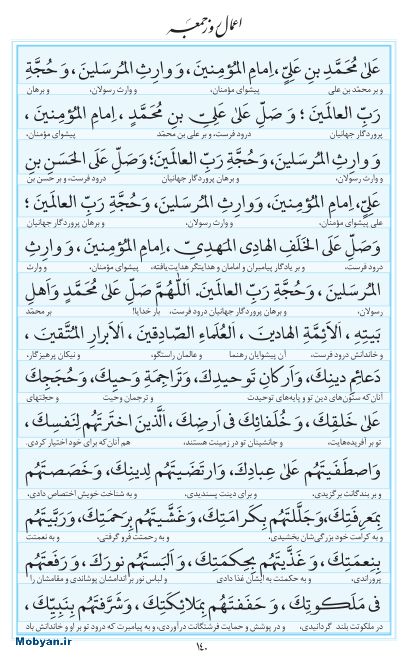 اعمال روز جمعه
عَلىٰ مُحَمَّدِ بنِ عَلِيٍّ، اِمامِ المُؤمِنينَ، وَ وارِثِ المُرسَلينَ، وَ حُجَّةِ
و بر محمّد بن علی پیشوای مؤمنان، و وارث رسولان، و برهان
رَبِّ العالَمينَ ؛ وَ صَلِّ عَلىٰ عَلِيِّ بنِ مُحَمَّدٍ ، اِمامِ المُؤمِنينَ ،
پروردگار جهانیان درود فرست، و بر علی بن محمّد پیشوای مؤمنان،
وَ وارِثِ المُرسَلينَ، وَ حُجَّةِ رَبِّ العالَمينَ؛ وَ صَلِّ عَلَى الحَسَنِ بنِ
و وارث رسولان، و برهان پروردگار جهانیان درود فرست، و بر حسن بن
عَلِيٍّ، اِمامِ المُؤمِنينَ، وَ وارِثِ المُرسَلينَ، وَ حُجَّةِ رَبِّ العالَمينَ ؛
علی پیشوای مؤمنان، و وارث رسولان، و برهان پروردگار جهانیان
وَ صَلِّ عَلَى الخَلَفِ الهادِى المَهدِيِّ ، اِمامِ المُؤمِنينَ ، وَ وارِثِ
درود فرست، و بر یادگار پیامبران و امامان و هدایتگر هدایت‌یافته، پیشوای مؤمنان، و وارث
المُرسَلينَ ، وَ حُجَّةِ رَبِّ العالَمينَ. اَللّٰهُمَّ صَلِّ عَلىٰ مُحَمَّدٍ وَ اَهلِ
رسولان، و برهان پروردگار جهانیان درود فرست، بار خدایا! بر محمّد
بَيتِهِ ، اَلاَئِمَّةِ الهادينَ ، اَلعُلَماءِ الصّادِقينَ ، اَلاَبرارِ المُتَّقينَ ،
و خاندانش درود فرست، آن پیشوایان رهنما و عالمان راستگو، و نیکان پرهیزگار،
دَعائِمِ دينِكَ، وَ اَركانِ تَوحيدِكَ، وَ تَراجِمَةِ وَحيِكَ، وَ حُجَجِكَ
آنان که ستون‌های دین تو و پایه‌های توحیدت و ترجمان وحیت و حجتهای
عَلىٰ خَلقِكَ، وَ خُلَفائِكَ فى اَرضِكَ، اَلَّذينَ اختَرتَهُم لِنَفسِكَ ،
تو بر آفریده‌هایت، و جانشینان تو در زمینت هستند، هم آنان که برای خود اختیار کردی.
وَ اصطَفَيتَهُم عَلىٰ عِبادِكَ، وَ ارتَضَيتَهُم لِدينِكَ، وَ خَصَصتَهُم
و بر بندگانت برگزیدی، و برای دینت پسندیدی، و به شناخت خویش اختصاص دادی،
بِمَعرِفَتِكَ، وَ جَلَّلتَهُم بِكَرامَتِكَ، وَ غَشَّيتَهُم بِرَحمَتِكَ، وَ رَبَّيتَهُم
و به کرامت خود بزرگی‌شان بخشیدی، و به رحمتت فرو گرفتی، و به نعمتت
بِنِعمَتِكَ ، وَ غَذَّيتَهُم بِحِكمَتِكَ ، وَ اَلبَستَهُم نورَكَ ، وَ رَفَعتَهُم
پروراندی، و به حکمتت به ایشان غذا دادی و لباس نور بر اندامشان پوشاندی و مقامشان را
فى مَلَكوتِكَ ، وَ حَفَفتَهُم بِمَلائِكَتِكَ ، وَ شَرَّفتَهُم بِنَبِيِّكَ ،
در ملکوتت بلند گردانیدی، و در پوشش و حمایت فرشتگانت درآوردی، و به پیامبرت که درود تو بر او و خاندانش باد
١٤٠
Mobyan.ir